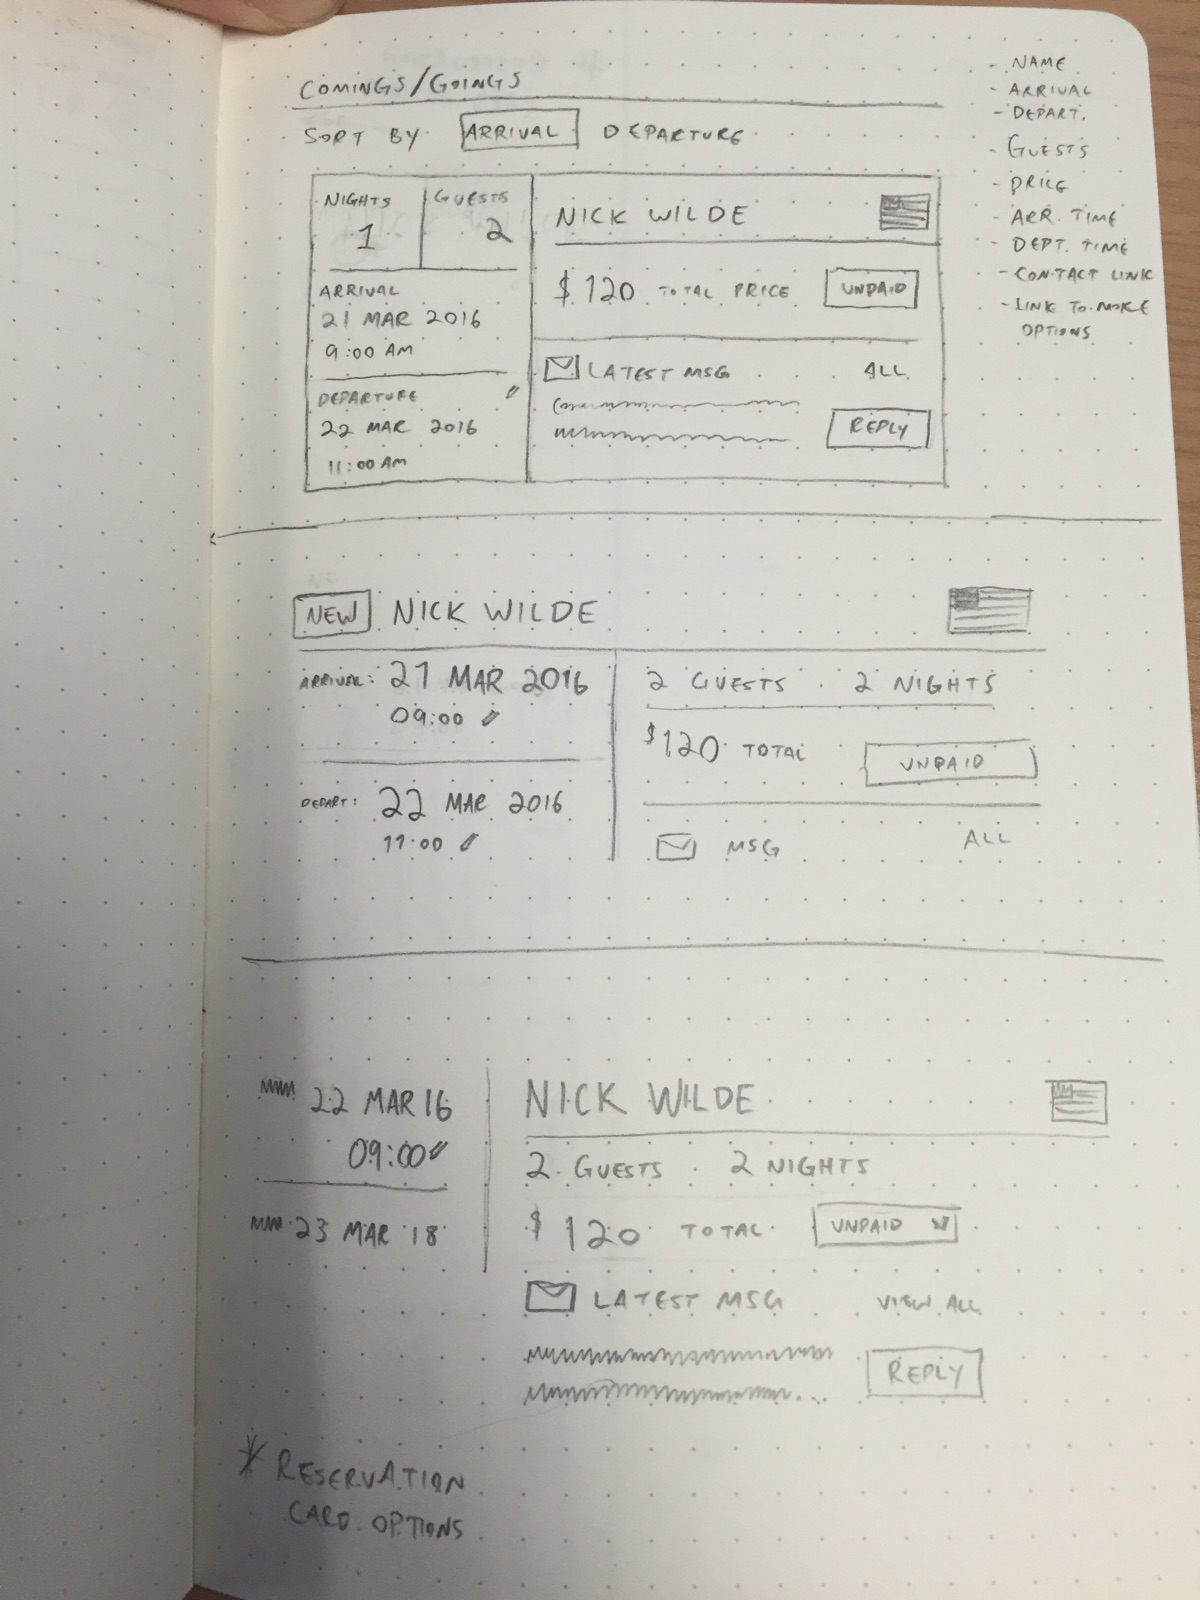 COMINGS/GOINGS
SORT BY ARRIVAL DEPARTURE
NIGHTS
1
GUESTS
2
ARRIVAL
21 MAR 2016
9:00 AM
DEPARTURE
22 MAR 2016
11:00 AM
NICK WILDE
$120 TOTAL PRICE UNPAID
LATEST MSG ALL
REPLY
- NAME
- ARRIVAL
- DEPART.
- GUESTS
- PRICE
- ARR. TIME
- DEPT. TIME
- CONTACT LINK
- LINK TO MORE
OPTIONS
NEW NICK WILDE
ARRIVAL: 21 MAR 2016
09:00
DEPART: 22 MAR 2016
11:00
2 GUESTS . 2 NIGHTS
$120 TOTAL UNPAID
MSG ALL
22 MAR 16
09:00
23 MAR 18
NICK WILDE
2 GUESTS . 2 NIGHTS
$120 TOTAL UNPAID
LATEST MSG VIEW ALL
REPLY
* RESERVATION
CARD OPTIONS